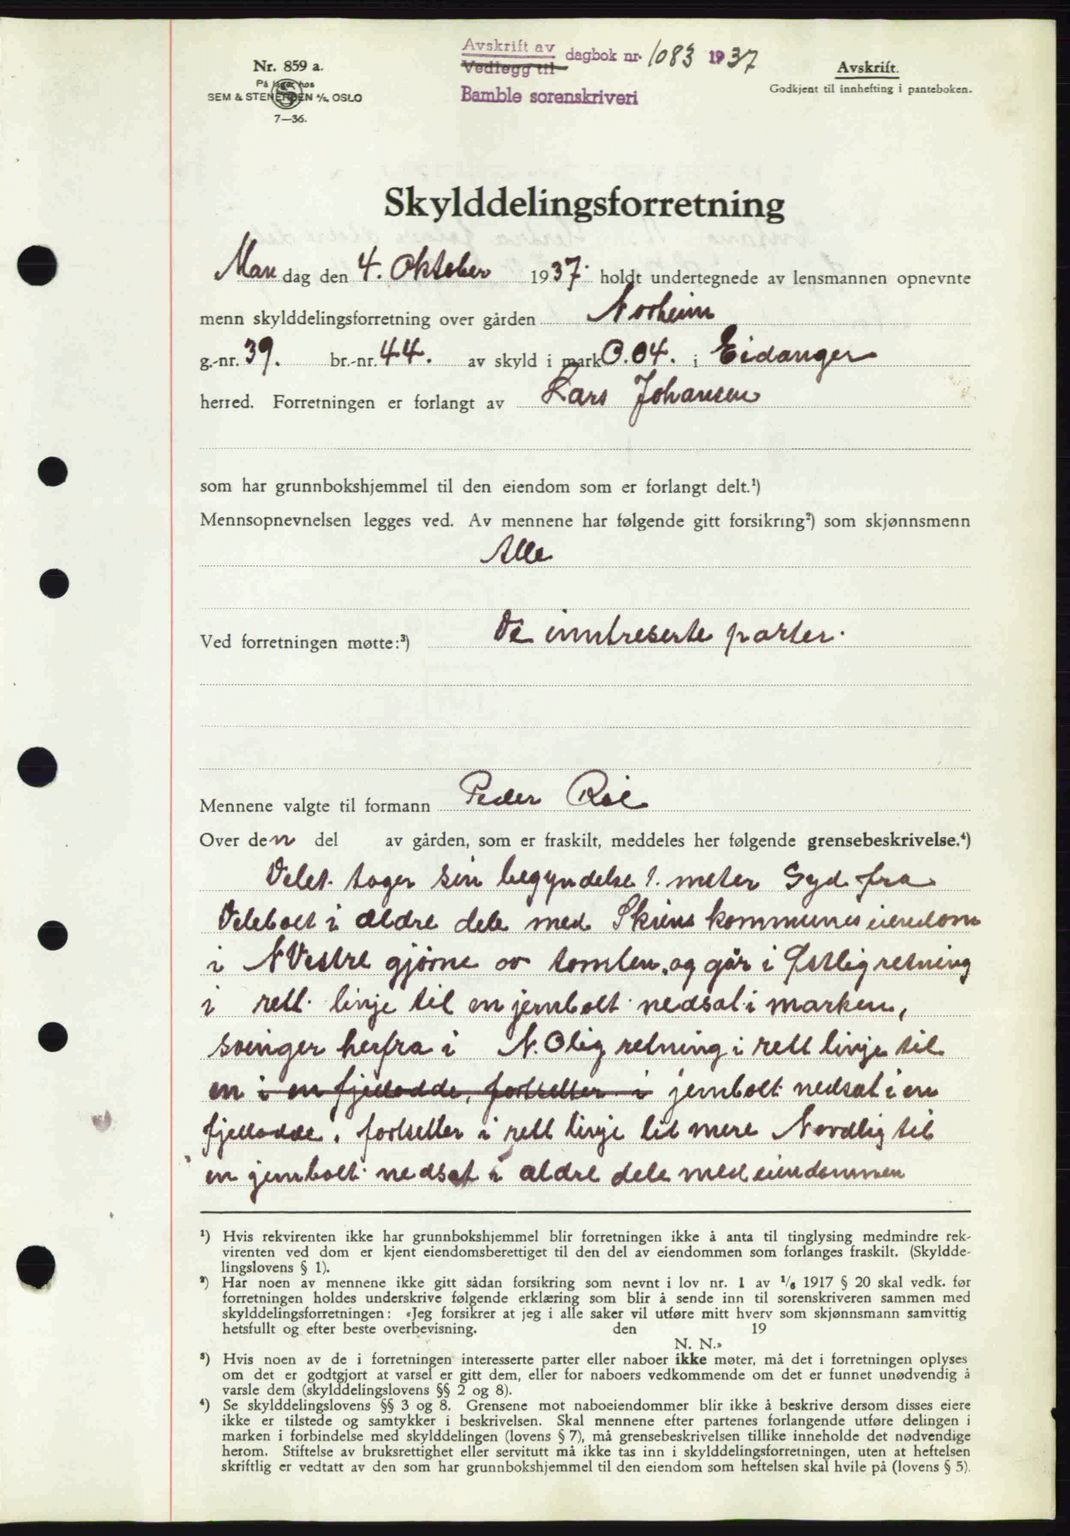 Nr. 859 a.
På lager hos
SEM & STENERSEN A/S. OSLO
7—36.
Avskrift av
Vedlegg til
dagbok nr. 1083 1937
Bamble sorenskriveri
Avskrift.
Godkjent til innhefting i panteboken.
Skylddelingsforretning
Mandag den 4. Oktober 1937. holdt undertegnede av lensmannen opnevnte
menn skylddelingsforretning over gården Norheim
g.-nr. 39. br.-nr. 44. av skyld i mark 0.04. i Eidanger
herred. Forretningen er forlangt av Lars Johansen
som har grunnbokshjemmel til den eiendom som er forlangt delt.¹)
Mennsopnevnelsen legges ved. Av mennene har følgende gitt forsikring²) som skjønnsmenn
Alle
Ved forretningen møtte:³) De inntreserte parter.
Mennene valgte til formann Peder
Over den del av gården, som er fraskilt, meddeles her følgende grensebeskrivelse.⁴)
Delet tager sin begyndelse 1. meter Syd fra
Delebolt i ældre dele med Skiens kommunes eiendom
i N Vestre gjørne av tomten, og går i Østlig retning
i rett linje til en jernbolt nedsat i marken,
svinger herfra i N. Olig retning i rett linje til
en i en fjellodde, fortsetter i jernbolt nedsat i en
fjellodde, fortsetter i rett linje lit mere Nordlig til
en jernbolt nedsat i ældre dele med eiendommen
¹) Hvis rekvirenten ikke har grunnbokshjemmel blir forretningen ikke å anta til tinglysing medmindre rek-
virenten ved dom er kjent eiendomsberettiget til den del av eiendommen som forlanges fraskilt. (Skyldde-
lingslovens § 1).
²) Har noen av mennene ikke gitt sådan forsikring som nevnt i lov nr. 1 av 1/6 1917 § 20 skal vedk. før
forretningen holdes underskrive følgende erklæring som blir å sende inn til sorenskriveren sammen med
skylddelingsforretningen: «Jeg forsikrer at jeg i alle saker vil utføre mitt hverv som skjønnsmann samvittig
hetsfullt og efter beste overbevisning. den 19
N. N.»
³) Hvis noen av de i forretningen interesserte parter eller naboer ikke møter, må det i forretningen oplyses
om det er godtgjort at varsel er gitt dem, eller for naboers vedkommende om det er funnet unødvendig å
varsle dem (skylddelingslovens §§ 2 og 8).
⁴) Se skylddelingslovens §§ 3 og 8. Grensene mot naboeiendommer blir ikke å beskrive dersom disses eiere
ikke er tilstede og samtykker i beskrivelsen. Skal mennene efter partenes forlangende utføre delingen i
marken i forbindelse med skylddelingen (lovens § 7), må grensebeskrivelsen tillike inneholde det nødvendige
herom. Stiftelse av bruksrettighet eller servitutt må ikke tas inn i skylddelingsforretningen, uten at heftelsen
skriftlig er vedtatt av den som har grunnbokshjemmel til den eiendom som heftelsen skal hvile på (lovens § 5).